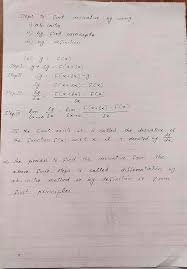 Steps to find derivative by using
i) ab-initio
ii) by first principle
iii) by definition
let y = f(x)
Step1 y + δy = f(x+δx)
Step2 δy = f(x+δx) - y
δy = f(x+δx) - f(x)
Step3 δy/δx = f(x+δx) - f(x) / δx
Step4 lim δx→0 δy/δx = lim δx→0 f(x+δx) - f(x) / δx
If the limit exists it is called the derivative of
the function f(x) w.r.t x it is denoted by dy/dx
The process to find the derivative from the
above four steps is called differentiation by
ab-initio method or by definition or from
first principles